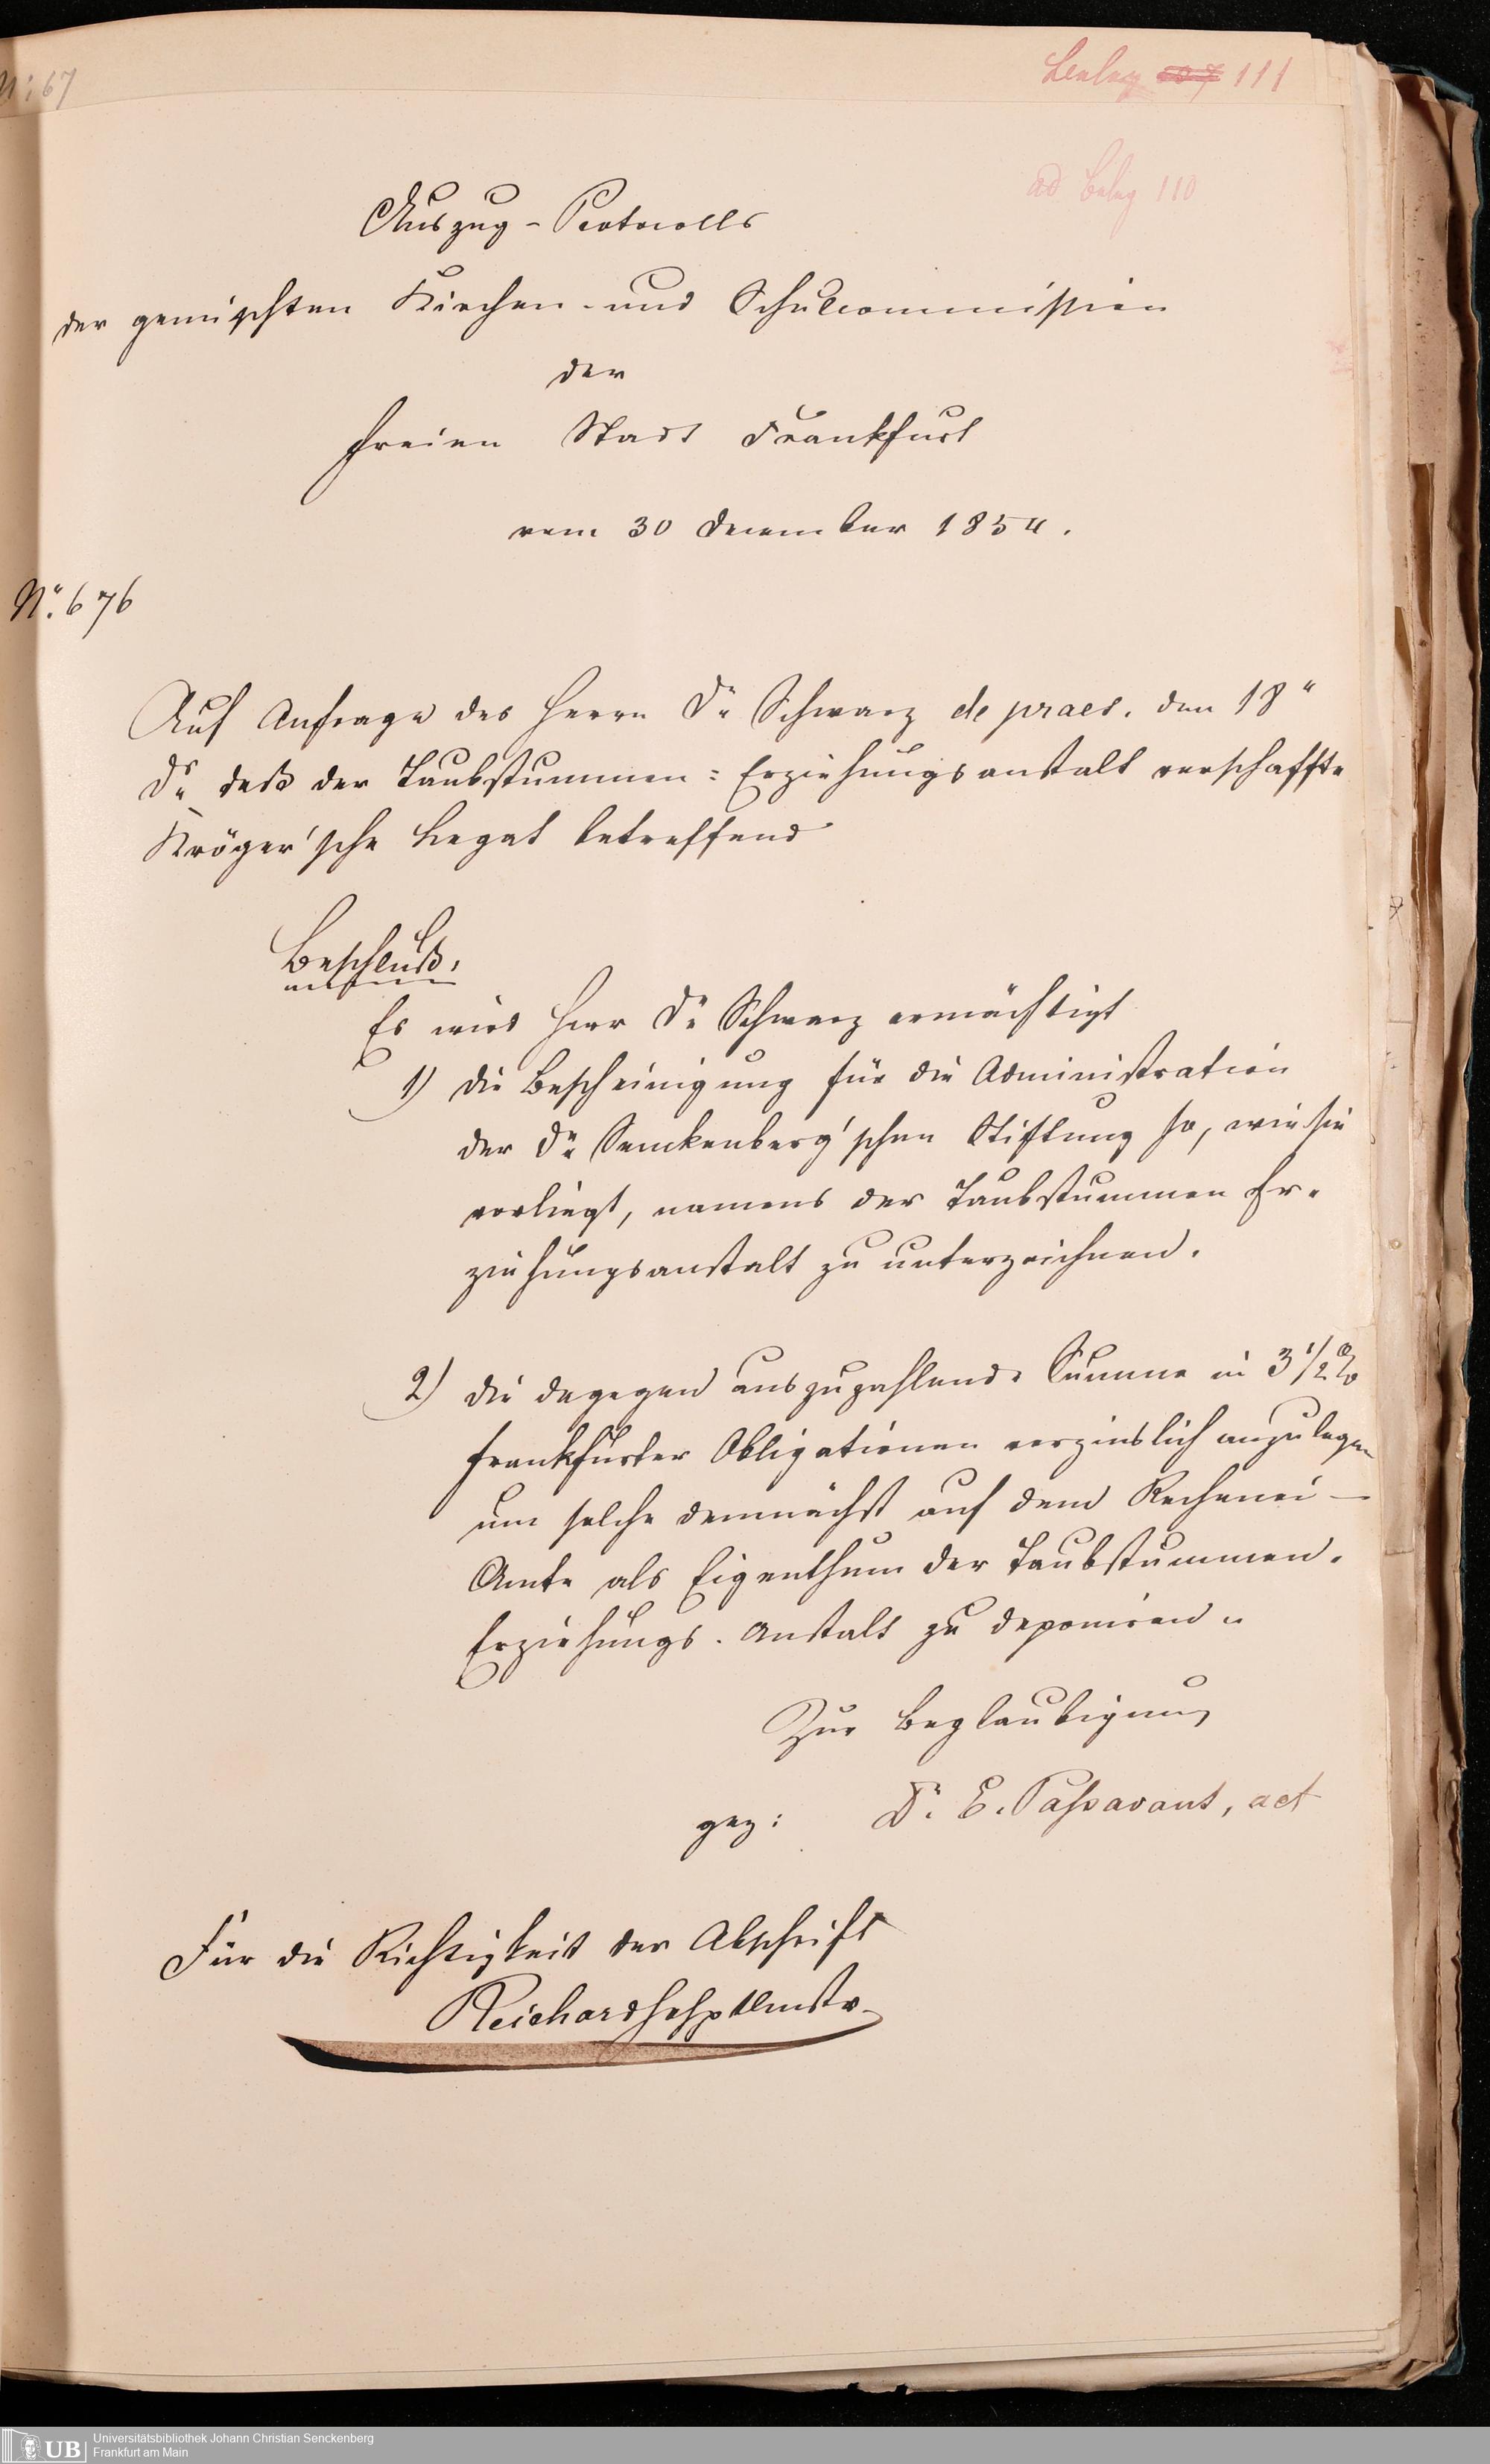 N: 67
Beleg 111
ad Beleg 110
Auszug-Protocolls
der gemischten Kirchen- und Schulcommission
der
freien Stadt Frankfurt
vom 30 December 1854.
No. 676
Auf Anfrage des Herrn Dr Schwarz de praes. den 18"
Ds. daß der Taubstummen=Erziehungsanstalt verschaffte
Kröger'sche Legat betreffend
Beschluß:
Es wird Herr Dr Schwarz ermächtigt
1) die Bescheinigung für die Administration
der Dr Senckenberg'schen Stiftung so, wie sie
vorliegt, namens der Taubstummen Er-
ziehungsanstalt zu unterzeichnen.
2) die dagegen auszuzahlende Summe in 3 1/2 %
Frankfurter Obligationen verzinslich anzulegen
um solche demnächst auf dem Rechenei-
Amte als Eigenthum der Taubstummen-
Erziehungs-Anstalt zu deponiren.
Zur Beglaubigung
gez: Dr. E. Passavant, act
Für die Richtigkeit der Abschrift
Reichard
Universitätsbibliothek Johann Christian Senckenberg
UB Frankfurt am Main